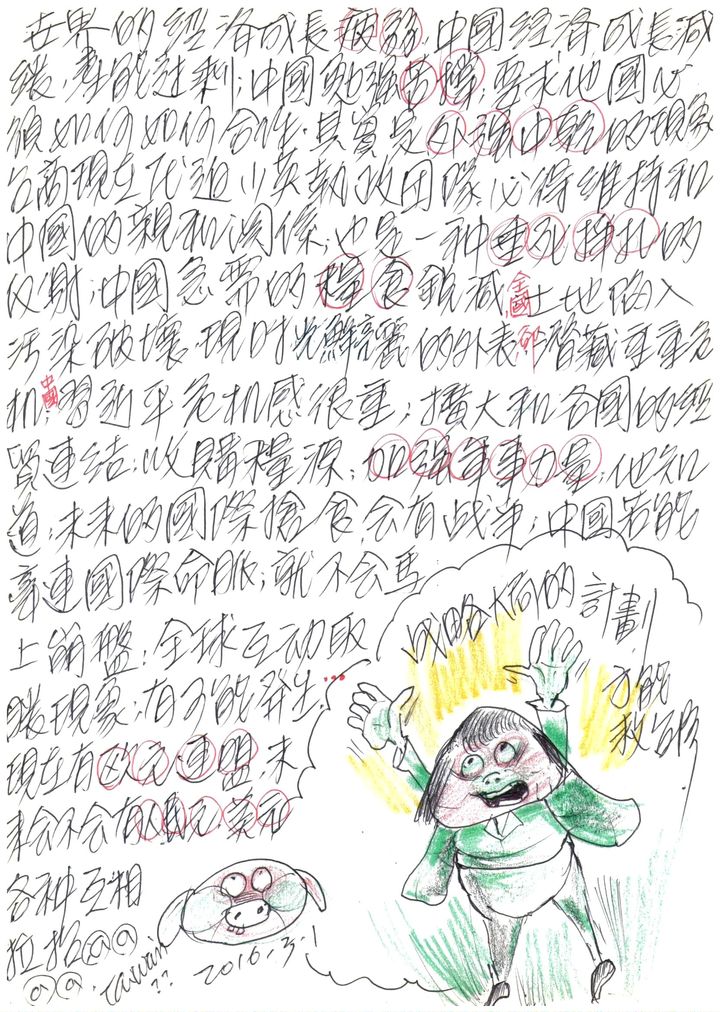 世界的經濟成長疲弱,中國經濟成長減
緩,產能過剩;中國勉強苦撐,要求他國必
須如何如何合作.其實是外強中乾的現象
台商現在促迫小英執政團隊必得維持和
中國的親和關係,也是一種垂死掙扎的
反射;中國急需的糧食銳減,全國土地陷入
污染破壞.現時光鮮亮麗的外表卻潛藏重重危
机,中國習近平危机感很重;擴大和各國的經
貿連結;收購糧源;加強軍事力量;他知
道,未來的國際搶食会有战争;中國若能
牽連國際命脈;就不会馬
上崩盤;全球互动取
暖現象;有可能發生...
現在有欧元連盟.未
來会不会有人民元.美元
各种互相
拉抬@@
@@.Taiwan
??
2016.3.1
战略大崗的計劃.
才能
救台灣